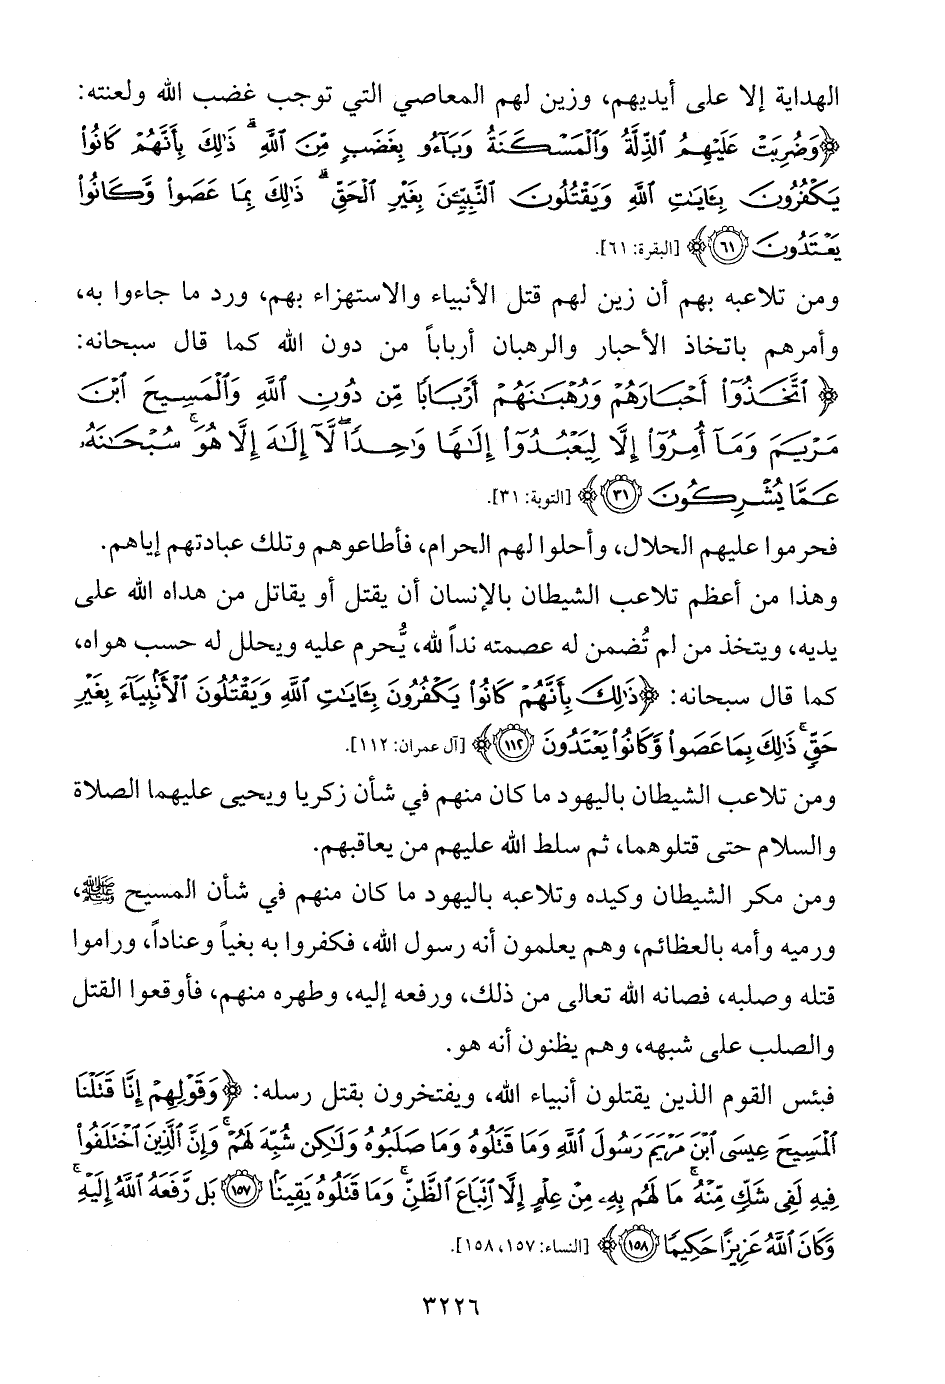 الهداية إلا على أيديهم، وزين لهم المعاصي التي توجب غضب الله ولعنته:
﴿وَضُرِبَتْ عَلَيْهِمُ ٱلذِّلَّةُ وَٱلْمَسْكَنَةُ وَبَآءُو بِغَضَبٍ مِّنَ ٱللَّهِ ۗ ذَٰلِكَ بِأَنَّهُمْ كَانُوا۟
يَكْفُرُونَ بِـَٔايَـٰتِ ٱللَّهِ وَيَقْتُلُونَ ٱلنَّبِيِّـۧنَ بِغَيْرِ ٱلْحَقِّ ۗ ذَٰلِكَ بِمَا عَصَوا۟ وَّكَانُوا۟
يَعْتَدُونَ ﴿٦١﴾﴾ [البقرة: ٦١].
ومن تلاعبه بهم أن زين لهم قتل الأنبياء والاستهزاء بهم، ورد ما جاءوا به،
وأمرهم باتخاذ الأحبار والرهبان أرباباً من دون الله كما قال سبحانه:
﴿ٱتَّخَذُوٓا۟ أَحْبَارَهُمْ وَرُهْبَـٰنَهُمْ أَرْبَابًا مِّن دُونِ ٱللَّهِ وَٱلْمَسِيحَ ٱبْنَ
مَرْيَمَ وَمَآ أُمِرُوٓا۟ إِلَّا لِيَعْبُدُوٓا۟ إِلَـٰهًا وَٰحِدًا ۖ لَّآ إِلَـٰهَ إِلَّا هُوَ ۚ سُبْحَـٰنَهُۥ
عَمَّا يُشْرِكُونَ ﴿٣١﴾﴾ [التوبة: ٣١].
فحرموا عليهم الحلال، وأحلوا لهم الحرام، فأطاعوهم وتلك عبادتهم إياهم.
وهذا من أعظم تلاعب الشيطان بالإنسان أن يقتل أو يقاتل من هداه الله على
يديه، ويتخذ من لم تُضمن له عصمته نداً لله، يُّحرم عليه ويحلل له حسب هواه،
كما قال سبحانه: ﴿ذَٰلِكَ بِأَنَّهُمْ كَانُوا۟ يَكْفُرُونَ بِـَٔايَـٰتِ ٱللَّهِ وَيَقْتُلُونَ ٱلْأَنۢبِيَآءَ بِغَيْرِ
حَقٍّ ۚ ذَٰلِكَ بِمَا عَصَوا۟ وَّكَانُوا۟ يَعْتَدُونَ ﴿١١٢﴾﴾ [آل عمران: ١١٢].
ومن تلاعب الشيطان باليهود ما كان منهم في شأن زكريا ويحيى عليهما الصلاة
والسلام حتى قتلوهما، ثم سلط الله عليهم من يعاقبهم.
ومن مكر الشيطان وكيده وتلاعبه باليهود ما كان منهم في شأن المسيح ﷺ،
ورميه وأمه بالعظائم، وهم يعلمون أنه رسول الله، فكفروا به بغياً وعناداً، وراموا
قتله وصلبه، فصانه الله تعالى من ذلك، ورفعه إليه، وطهره منهم، فأوقعوا القتل
والصلب على شبهه، وهم يظنون أنه هو.
فبئس القوم الذين يقتلون أنبياء الله، ويفتخرون بقتل رسله: ﴿وَقَوْلِهِمْ إِنَّا قَتَلْنَا
ٱلْمَسِيحَ عِيسَى ٱبْنَ مَرْيَمَ رَسُولَ ٱللَّهِ وَمَا قَتَلُوهُ وَمَا صَلَبُوهُ وَلَـٰكِن شُبِّهَ لَهُمْ ۚ وَإِنَّ ٱلَّذِينَ ٱخْتَلَفُوا۟
فِيهِ لَفِى شَكٍّ مِّنْهُ ۚ مَا لَهُم بِهِۦ مِنْ عِلْمٍ إِلَّا ٱتِّبَاعَ ٱلظَّنِّ ۚ وَمَا قَتَلُوهُ يَقِينًۢا ﴿١٥٧﴾ بَل رَّفَعَهُ ٱللَّهُ إِلَيْهِ ۚ
وَكَانَ ٱللَّهُ عَزِيزًا حَكِيمًا ﴿١٥٨﴾﴾ [النساء: ١٥٧، ١٥٨].
٣٢٢٦